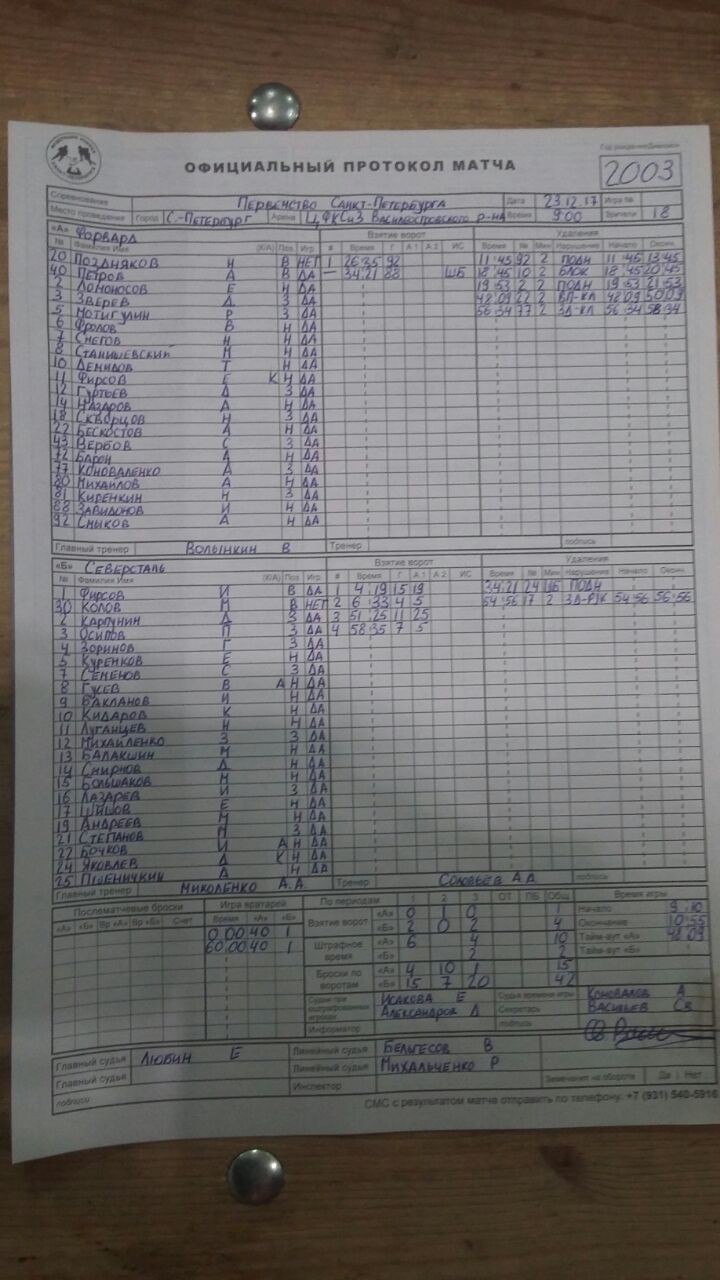 Год рождения/Дивизион
ОФИЦИАЛЬНЫЙ ПРОТОКОЛ МАТЧА 2003
Соревнование Первенство Санкт-Петербурга Дата 23.12.17 Игра №
Место проведения Город С.-Петербург Арена ЦФКСиЗ Василеостровского р-на Время 9:00 Зрители 18
«А» Форвард Взятие ворот Удаления
№ Фамилия Имя (К/А) Поз Игр # Время Г А 1 А 2 ИС Время № Мин Нарушение Начало Оконч.
20 Поздняков Н В НЕТ 1 26 35 92 11 45 92 2 ПОДН 11 45 13 45
40 Петров А В ДА — 34 21 88 ШБ 18 45 10 2 БЛОК 18 45 20 45
2 Ломоносов Е Н ДА 19 53 2 2 ПОДН 19 53 21 53
3 Зверев Д З ДА 48 09 22 2 ВП-КЛ 48 09 50 09
5 Мотигулин Р З ДА 56 34 77 2 ЗД-КЛ 56 34 58 34
6 Фролов В Н ДА
7 Снегов Н Н ДА
8 Станишевский М Н ДА
10 Демидов Т Н ДА
11 Фирсов Е К Н ДА
12 Гуртьев Д З ДА
14 Назаров А Н ДА
18 Скворцов Н З ДА
22 Бескостов А Н ДА
43 Вербов С З ДА
72 Барон А Н ДА
77 Коноваленко А З ДА
80 Михайлов А Н ДА
81 Киренкин Н З ДА
88 Завидонов И Н ДА
92 Сныков А Н ДА
Главный тренер Волынкин В Тренер подпись
«Б» Северсталь Взятие ворот Удаления
№ Фамилия Имя (К/А) Поз Игр # Время Г А 1 А 2 ИС Время № Мин Нарушение Начало Оконч.
1 Фирсов И В ДА 1 4 19 15 19 34 21 24 ШБ ПОДН
30 Колов М В НЕТ 2 6 33 4 5 54 56 17 2 ЗД-РУК 54 56 56 56
2 Карпунин Д З ДА 3 51 25 11 25
3 Осипов П З ДА 4 58 35 7 5
4 Зоринов Г З ДА
5 Куренков Е Н ДА
7 Семенов С З ДА
8 Гусев В А Н ДА
9 Бакланов И Н ДА
10 Кидаров К Н ДА
11 Луганцев Н Н ДА
12 Михайленко З З ДА
13 Балакшин М Н ДА
14 Смирнов Д Н ДА
15 Большаков М Н ДА
16 Лазарев И З ДА
17 Шишов Е Н ДА
19 Андреев М Н ДА
21 Степанов М З ДА
22 Бочков И А Н ДА
24 Яковлев Д К Н ДА
25 Пшеничкин А Н ДА
Главный тренер Миколенко А.А. Тренер Соловьев А А подпись
Послематчевые броски Игра вратарей По периодам 1 2 3 ОТ ПБ Общ Время игры
«А» «Б» Вр «А» Вр «Б» Счет Время «А» «Б» Взятие ворот «А» 0 1 0 1 Начало 9 10
0 00 40 1 «Б» 2 0 2 4 Окончание 10 55
60 00 40 1 Штрафное время «А» 6 4 10 Тайм-аут «А» 48 09
«Б» 2 2 Тайм-аут «Б»
Броски по воротам «А» 4 10 1 15
«Б» 15 7 20 42
Судьи при оштрафованных игроках Исакова Е Судья времени игры Коновалов А
Александров Д Секретарь Васильев Св
Информатор подпись
Главный судья Любин Е Линейный судья Бельтесов В
Главный судья Линейный судья Михальченко Р
подписи Инспектор Замечания на обороте Да Нет
СМС с результатом матча отправить по телефону: +7 (931) 540-5916